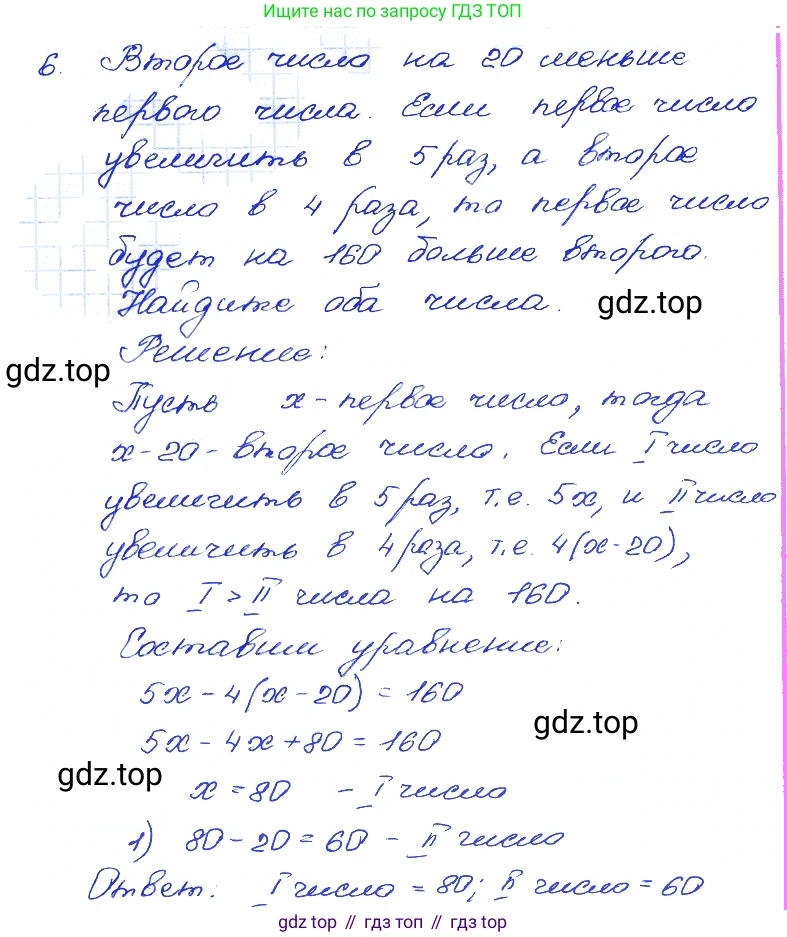 Ищите нас по запросу ГДЗ ТОП
6. Второе число на 20 меньше
первого числа. Если первое число
увеличить в 5 раз, а второе
число в 4 раза, то первое число
будет на 160 больше второго.
Найдите оба числа.
gdz.top
Решение:
gdz.top
Пусть x - первое число, тогда
x - 20 - второе число. Если I число
увеличить в 5 раз, т.е. 5x, и II число
увеличить в 4 раза, т.е. 4(x-20),
то I > II числа на 160.
Составим уравнение:
5x - 4(x - 20) = 160
gdz.top
5x - 4x + 80 = 160
gdz.top
x = 80 - I число
1) 80 - 20 = 60 - II число
Ответ: I число = 80; II число = 60
gdz top // гдз топ // gdz top